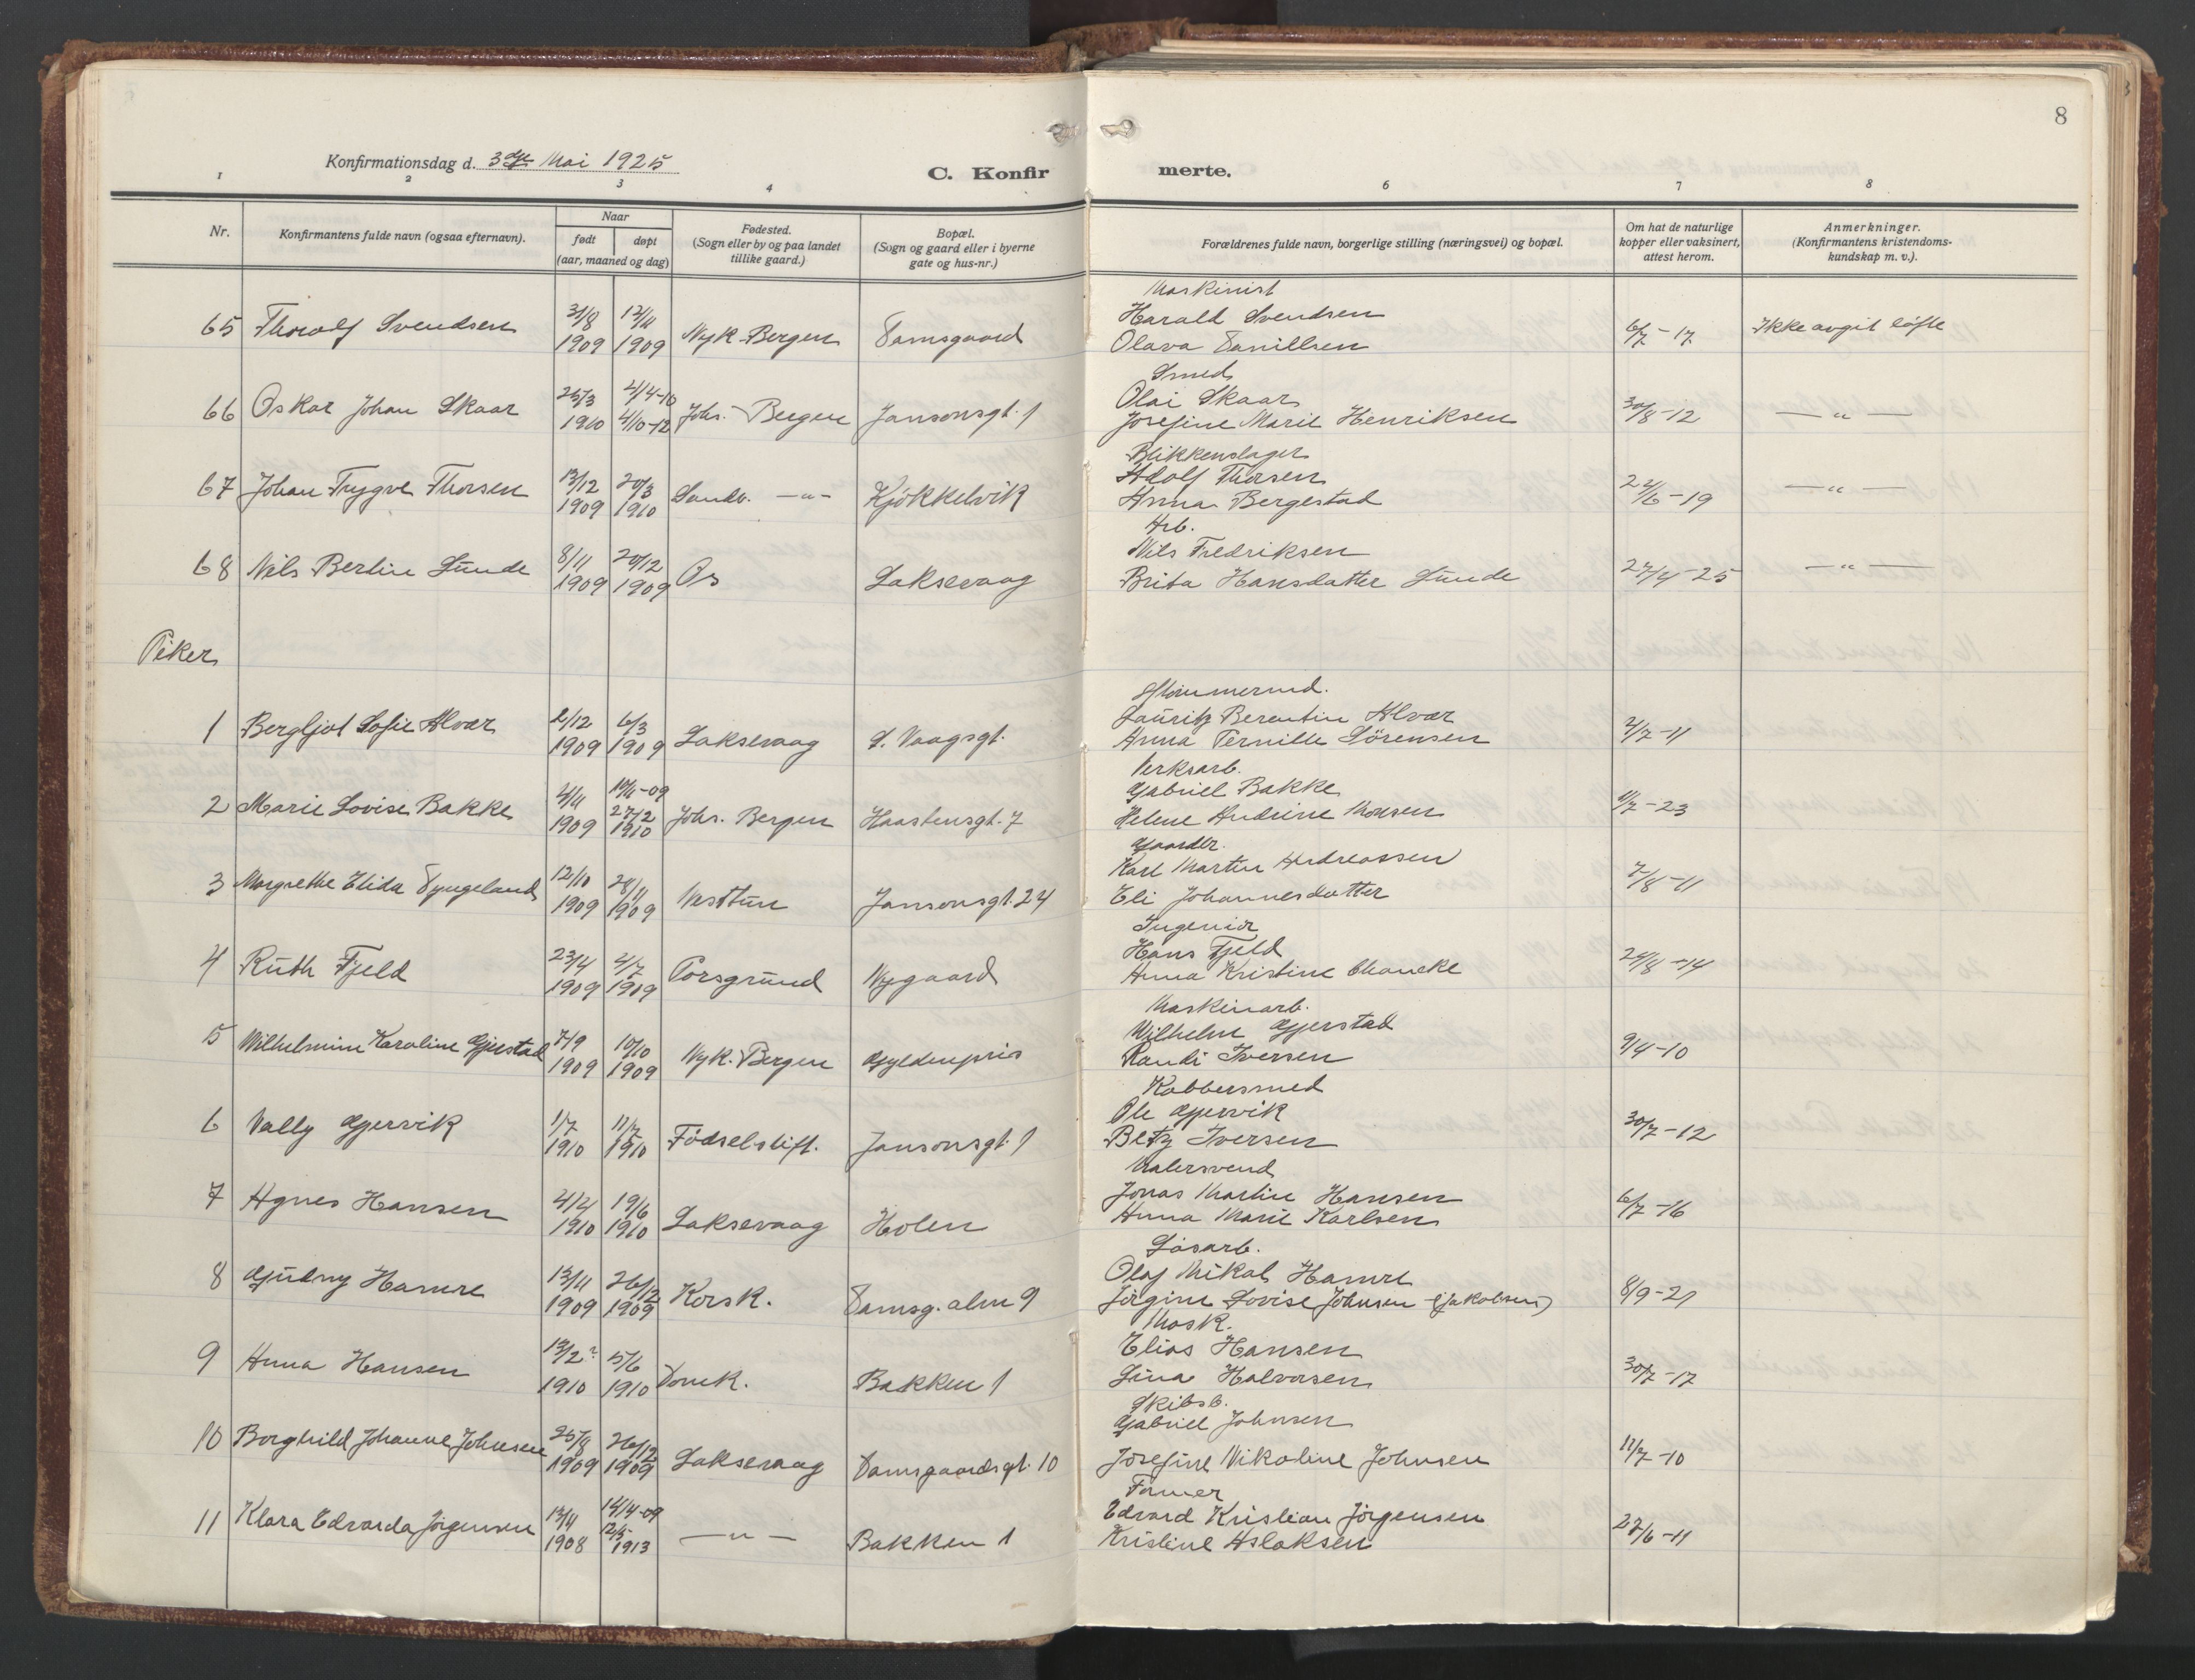 8
Konfirmationsdag d. 3dje Mai 1925
C. Konfirmerte.
1 2 3 4 6 7 8
Nr. Konfirmantens fulde navn (ogsaa efternavn). Naar født døpt (aar, maaned og dag) Fødested. (Sogn eller by og paa landet tillike gaard.) Bopæl. (Sogn og gaard eller i byerne gate og hus-nr.) Forældrenes fulde navn, borgerlige stilling (næringsvei) og bopæl. Om hat de naturlige kopper eller vaksinert, attest herom. Anmerkninger. (Konfirmantens kristendoms-kundskap m. v.).
Maskinist
65 Thoralf Svendsen 31/8 1909 12/11 1909 Nyk. Bergen Damsgaard Harald Svendsen 6/7-17 Ikke avgit løfte
Olava Danillsen
Smed
66 Oskar Johan Skaar 25/3 1910 4/10-12 Johs. Bergen Jansonsgt. 1 Olai Skaar 30/8-12 — " —
Josefine Marie Henriksen
Blikkenslager
67 Johan Trygve Thorsen 13/12 1909 20/3 1910 Sandv. — " — Kjøkkelvik Adolf Thorsen 22/6-19 — " —
Anna Bergestad
Arb.
68 Nils Bertin Lunde 8/11 1909 20/12 1909 Os Laksevaag Nils Fredriksen 27/4-25 — " —
Brita Hansdatter Lunde
Piker
1 Bergljot Sofie Alvær 2/12 1909 6/3 1909 Laksevaag S. Vaagsgt. Lauritz Berentin Alvær 2/7-11
Anna Pernille Sörensen
Verksarb.
2 Marie Lovise Bakke 4/11 1909 27/2 1910 Johs. Bergen Haastensgt. 7 Gabriel Bakke 11/7-23
Helene Andrine Monsen
Gaardbr.
3 Margrethe Elida Tyngeland 12/10 1909 28/11 1909 Nesttun Jansonsgt. 24 Karl Martin Andreassen 7/8-11
Eli Johannesdatter
Ingeniör
4 Ruth Fjeld 23/4 1909 4/7 1909 Porsgrund Nygaard Hans Fjeld 24/8-14
Anna Kristine
Maskinarb.
5 Wilhelmine Karoline Gjerstad 7/9 1909 10/10 1909 Nyk. Bergen Gyldenpris Wilhelm Gjerstad 9/4-10
Randi Iversen
Kobbersmed
6 Vally Gjervik 1/7 1910 11/7 1910 Födselsstift. Jansonsgt. 1 Ole Gjervik 30/7-12
Betzy Iversen
Malersvend
7 Agnes Hansen 4/4 1910 19/6 1910 Laksevaag Holen Jonas Martin Hansen 6/7-16
Anna Marie Karlsen
Løsarb.
8 Gudny Hamre 13/11 1909 26/12 1909 Korsk. Damsg. alm 9 Olaf Mikal Hamre 8/9-21
Jörgine Lovise Johnsen (Jakobsen)
Mask.
9 Anna Hansen 13/2? 1910 5/6 1910 Domk. Bakken 1 Elias Hansen 30/7-17
Lina Halvorsen
Skibsb.
10 Borghild Johanne Johnsen 25/8 1909 26/12 1909 Laksevaag Damsgaardsgt. 10 Gabriel Johnsen 11/7-10
Josefine Nikoline Johnsen
Former
11 Klara Edvarda Jörgensen 13/11 1908 14/4-09 12/5-1913 — " — Bakken 1 Edvard Kristian Jörgensen 27/6-11
Kristine Aslaksen